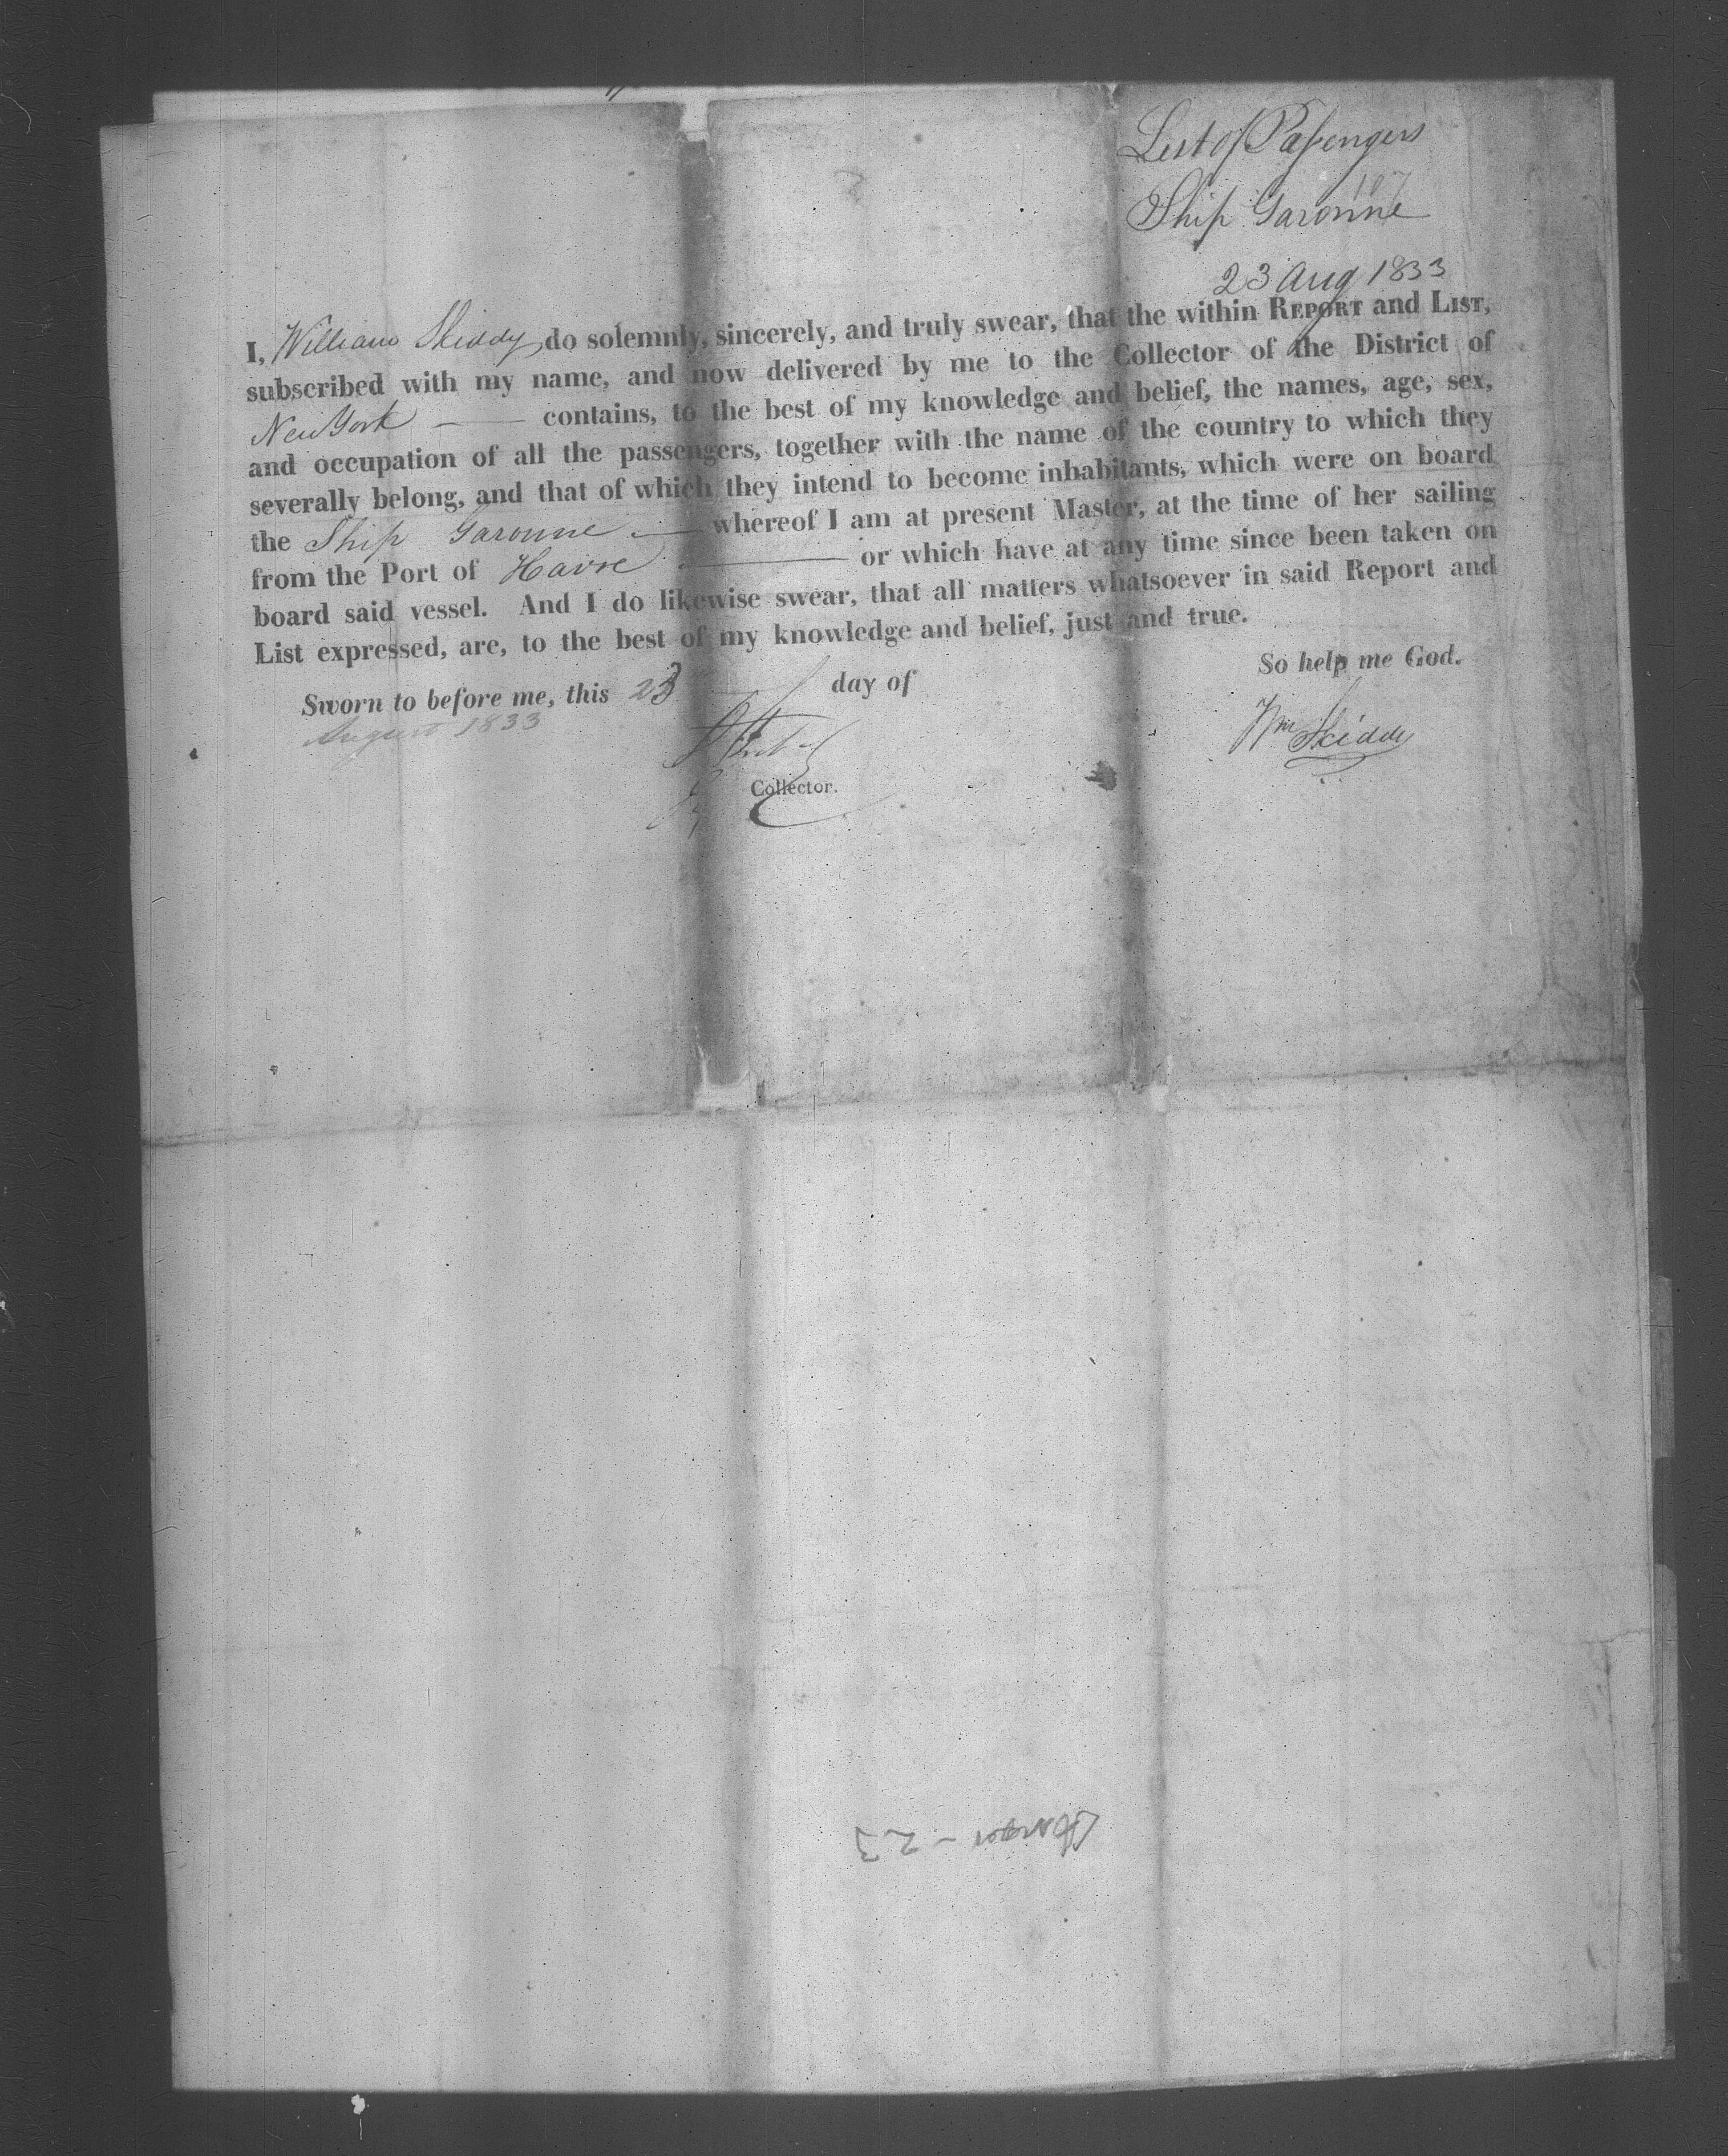 List of Passengers
107
Ship Garonne
23 Aug 1833
I, William Skiddy, do solemnly, sincerely, and truly swear, that the within REPORT and LIST,
subscribed with my name, and now delivered by me to the Collector of the District of
New York — contains, to the best of my knowledge and belief, the names, age, sex,
and occupation of all the passengers, together with the name of the country to which they
severally belong, and that of which they intend to become inhabitants, which were on board
the Ship Garonne — whereof I am at present Master, at the time of her sailing
from the Port of Havre — or which have at any time since been taken on
board said vessel. And I do likewise swear, that all matters whatsoever in said Report and
List expressed, are, to the best of my knowledge and belief, just and true.
So help me God.
Sworn to before me, this 23 day of
August 1833
Wm Skiddy
Collector.
- 23